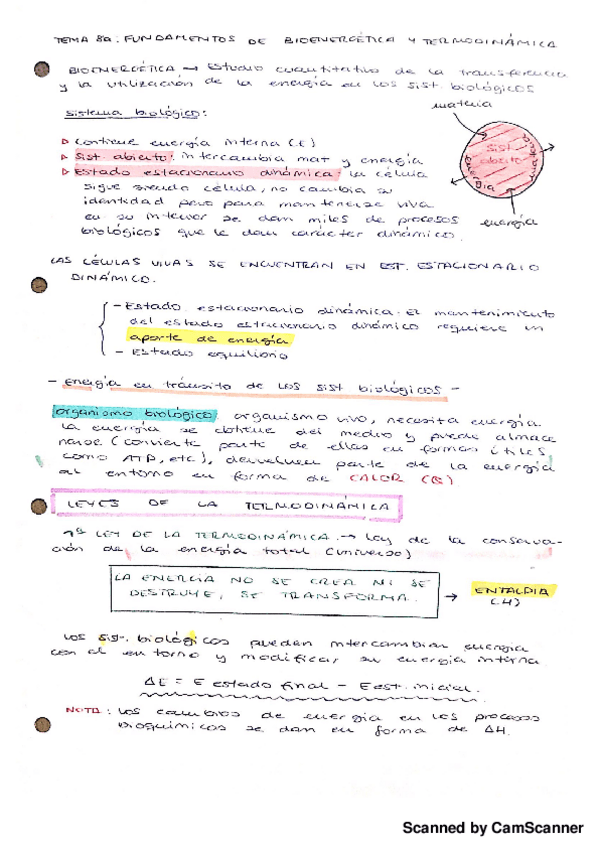 TEMA 8a: FUNDAMENTOS DE BIOENERGÉTICA Y TERMODINÁMICA
BIOENERGÉTICA → Estudio cuantitativo de la transferencia
y la utilización de la energía en los sist. biológicos
materia
sistema biológico:
▷ Contiene energía interna (E)
▷ Sist abierto: intercambia mat y energía
▷ Estado estacionario dinámico: la célula
sigue siendo célula, no cambia su
identidad pero para mantenerse viva
en su interior se dan miles de procesos
biológicos que le dan carácter dinámico.
Sist.
abierto
energía
energía
LAS CÉLULAS VIVAS SE ENCUENTRAN EN EST. ESTACIONARIO
DINÁMICO.
- Estado estacionario dinámico. El mantenimiento
del estado estacionario dinámico requiere un
aporte de energía
- Estado equilibrio
- energía en tránsito de los sist biológicos -
organismo biológico: organismo vivo, necesita energía
la energía se obtiene del medio y puede almace
narse (convierte parte de ellas en formas útiles
como ATP, etc), devuelven parte de la energía
al entorno en forma de CALOR (Q)
LEYES DE LA TERMODINÁMICA
1ª LEY DE LA TERMODINÁMICA → Ley de la conserva-
ción de la energía total (universo)
LA ENERGÍA NO SE CREA NI SE
DESTRUYE, SE TRANSFORMA. → ENTALPIA
(H)
Los sist. biológicos pueden intercambiar energía
con el entorno y modificar su energía interna.
ΔE = E estado final - E est. inicial.
NOTA: Los cambios de energía en los procesos
bioquímicos se dan en forma de ΔH.
Scanned by CamScanner